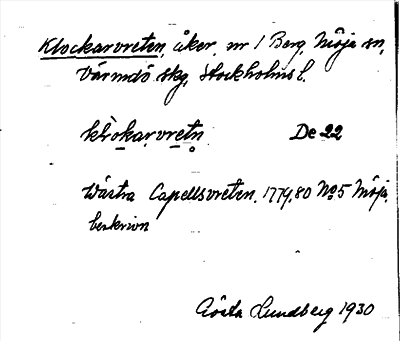 Klockarvreten, åker, nr 1 Berg, Möja sn,
Värmdö skg, Stockholms l.
klòkarvretn De 22
Wästra Capellsvreten. 1779,80 No 5 Möja,
beskrivn
Gösta Lundberg 1930